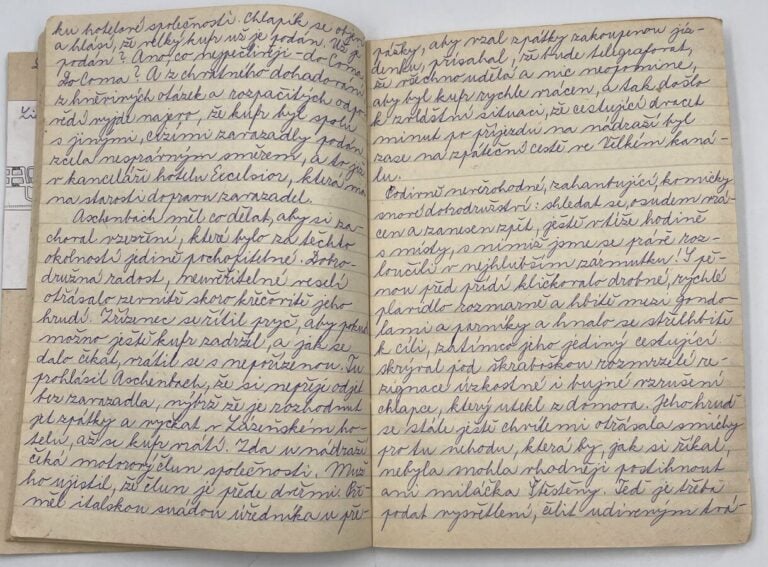 ku hotelové společnosti. Chlapík se
a hlásí, že velký kufr už je podán. Už
podán? Ano, co nejpečlivěji - do Coma.
Do Coma? A z chvatného dohadování
z hněvivých otázek a rozpačitých odpo-
vědí vyjde najevo, že kufr byl spolu
s jinými, cizími zavazadly podán
zcela nesprávným směrem, a to již
v kanceláři hotelu Excelsior, která má
na starosti dopravu zavazadel.
Aschenbach měl co dělat, aby si za-
choval vzezření, které bylo za těchto
okolností jedině pochopitelné. Dobro-
družná radost, neuvěřitelné veselí
otřásalo zevnitř skoro křečovitě jeho
hrudí. Zřízenec se řítil pryč, aby pokud
možno ještě kufr zadržel, a jak se
dalo čekat, vrátil se s nepořízenou. Tu
prohlásil Aschenbach, že si nepřeje odjet
bez zavazadla, nýbrž že je rozhodnut
jet zpátky a vyčkat v Lázeňském ho-
telu, až se kufr vrátí. Zda u nádraží
čeká motorový člun společnosti. Muž
ho ujistil, že člun je přede dveřmi. Při-
měl italskou swadou úředníka u pře-
pážky, aby vzal zpátky zakoupenou jíz-
denku, přísahal, že bude telegrafovat,
že všechno udělá a nic neopomine,
aby byl kufr rychle vrácen, a tak došlo
k zvláštní situaci, že cestující dvacet
minut po příjezdu na nádraží byl
zase na zpáteční cestě ve Velkém kaná-
lu.
Podivně nevěrohodné, zahanbující, komicky
snové dobrodružství: shledat se, osudem vrá-
cen a zanesen zpět, ještě v téže hodině
s místy, s nimiž jsme se právě roz-
loučili v nejhlubším zármutku! S pě-
nou před přídí kličkovalo drobné, rychlé
plavidlo rozmarně a hbitě mezi gondo-
lami a parníky a hnalo se střelhbitě
k cíli, zatímco jeho jediný cestující
skrýval pod škraboškou rozmrzelé re-
zignace úzkostné i bujné vzrušení
chlapce, který utekl z domova. Jeho hruď
se stále ještě chvílemi otřásala smíchy
pro tu nehodu, která by, jak si říkal,
nebyla mohla vhodněji postihnout
ani miláčka Štěstěny. Teď je třeba
podat vysvětlení, čelit udiveným tvá-